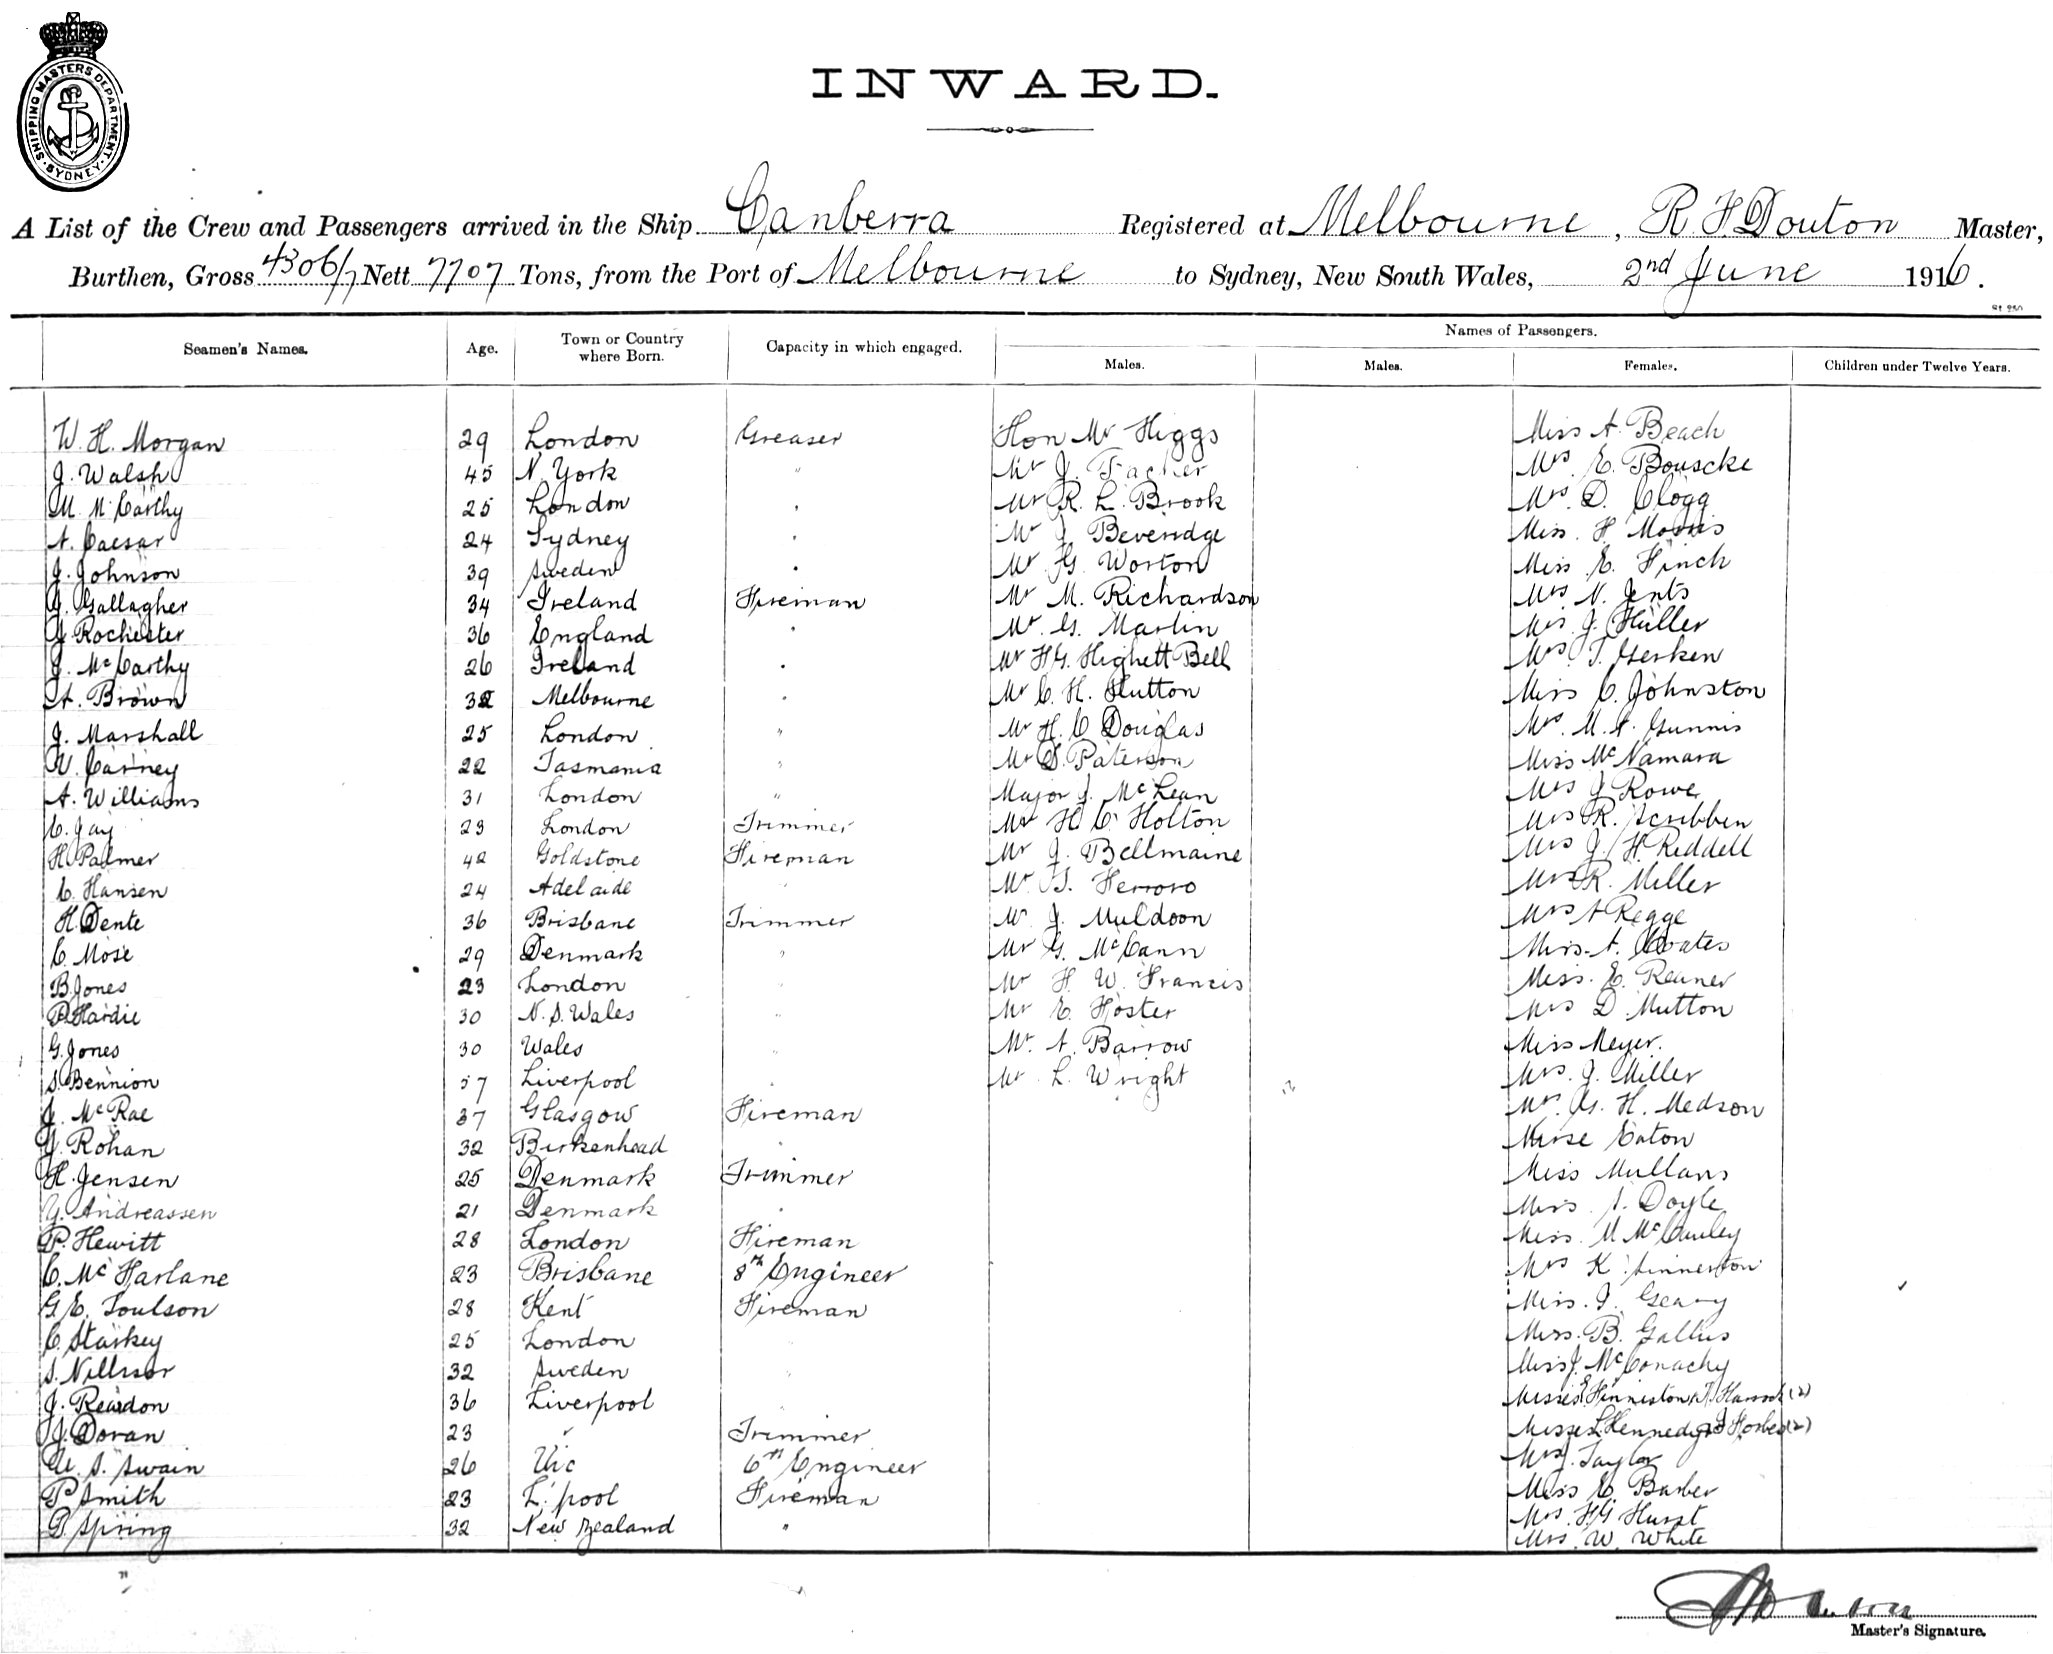 SHIPPING MASTERS DEPARTMENT · SYDNEY ·
INWARD.
A List of the Crew and Passengers arrived in the Ship Canberra Registered at Melbourne, R F Douton Master,
Burthen, Gross 4306/7 Nett 7707 Tons, from the Port of Melbourne to Sydney, New South Wales, 2nd June 1916.
Names of Passengers.
Seamen's Names. Age. Town or Country where Born. Capacity in which engaged. Males. Males. Females. Children under Twelve Years.
W. H. Morgan 29 London Greaser Hon Mr Higgs Miss A. Beach
J. Walsh 45 N. York " Mr J. Mrs. E. Bouscke
M. McCarthy 25 London " Mr R. L. Brook Mrs. D. Clogg
A. Caesar 24 Sydney " Mr J Beveridge Miss. H Morris
J. Johnson 39 Sweden " Mr G. Worton Miss E. Finch
J. Gallagher 34 Ireland Fireman Mr M. Richardson Mrs N. Jents
J. Rochester 36 England " Mr. G. Martin Mrs. J. Huller
J. McCarthy 26 Ireland " Mr H.G. Highett Bell Mrs. T. Gerken
A. Brown 32 Melbourne " Mr C. H. Hutton Miss C. Johnston
J. Marshall 25 London " Mr H. C Douglas Mrs. M. A. Gunnis
W. Carney 22 Tasmania " Mr D. Paterson Miss McNamara
A. Williams 31 London " Major J. McLean Mrs J Rowe
C. Jay 23 London Trimmer Mr H C. Holton Mrs R. Scribben
H. Palmer 42 Goldstone Fireman Mr J. Bellmaine Mrs J. H. Riddell
C. Hansen 24 Adelaide " Mr. S. Ferroro Mrs R. Miller
H. Dente 36 Brisbane Trimmer Mr J. Muldoon Mrs A Regge
C. Mose 29 Denmark " Mr G. McCann Miss. A. Coates
B. Jones 23 London " Mr H. W. Francis Miss. E. Reuner
P. Hardie 30 N. S. Wales " Mr E. Foster Mrs D. Mutton
G. Jones 30 Wales " Mr. A. Barrow Miss Meyer.
S. Bennion 37 Liverpool " Mr L. Wright Mrs. J. Miller
J. McRae 37 Glasgow Fireman Mrs. G. H. Medson
J. Rohan 32 Birkenhead " Nurse Eaton
H. Jensen 25 Denmark Trimmer Miss Mullans
Y. Andreassen 21 Denmark " Miss. A. Doyle
P. Hewitt 28 London Fireman Miss. M McCauley
C. McFarlane 23 Brisbane 8th Engineer Mrs K. Sinnerton
G. E. Toulson 28 Kent Fireman Miss. J. Geary
C. Starkey 25 London " Mrs. B. Gallus
S. Nillsson 32 Sweden " Miss J. McConachy
J. Reardon 36 Liverpool Misses E. Finniston (2)
J. Doran 23 " Trimmer Misses L. Kennedy & J Forbes (2)
W. S. Swain 26 Vic 6th Engineer Mrs J. Taylor
P Smith 23 L'pool Fireman Miss E. Barber
D. Spring 32 New Zealand " Mrs. H.G Hurst
Mrs. W. White
Master's Signature.